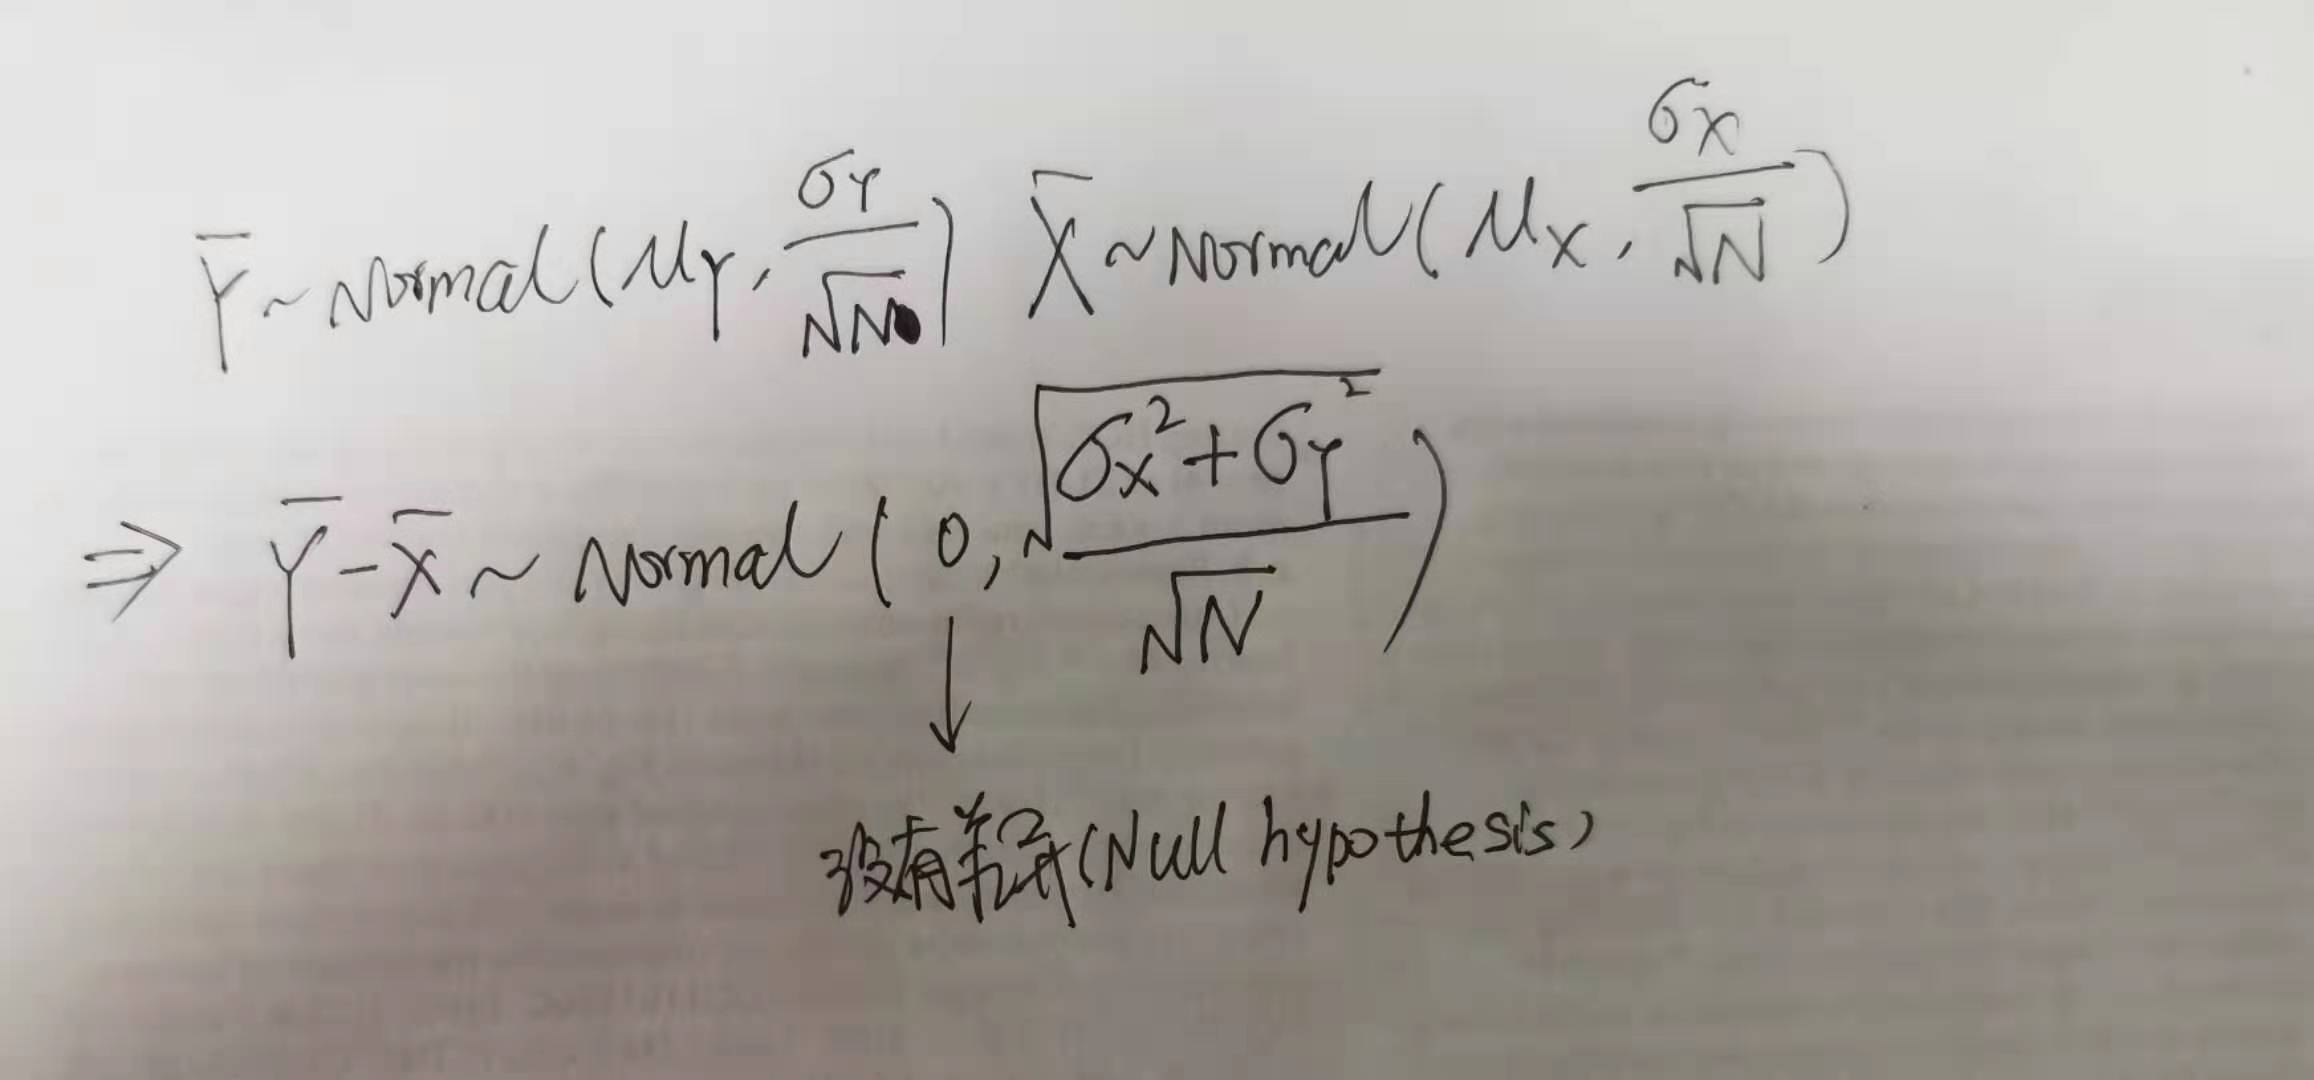 Ȳ ~ Normal(μ_Y, σ_Y/√N) X̄ ~ Normal(μ_X, σ_X/√N)
⇒ Ȳ - X̄ ~ Normal(0, √(σ_X²+σ_Y²)/√N)
↓
没有差异(Null hypothesis)